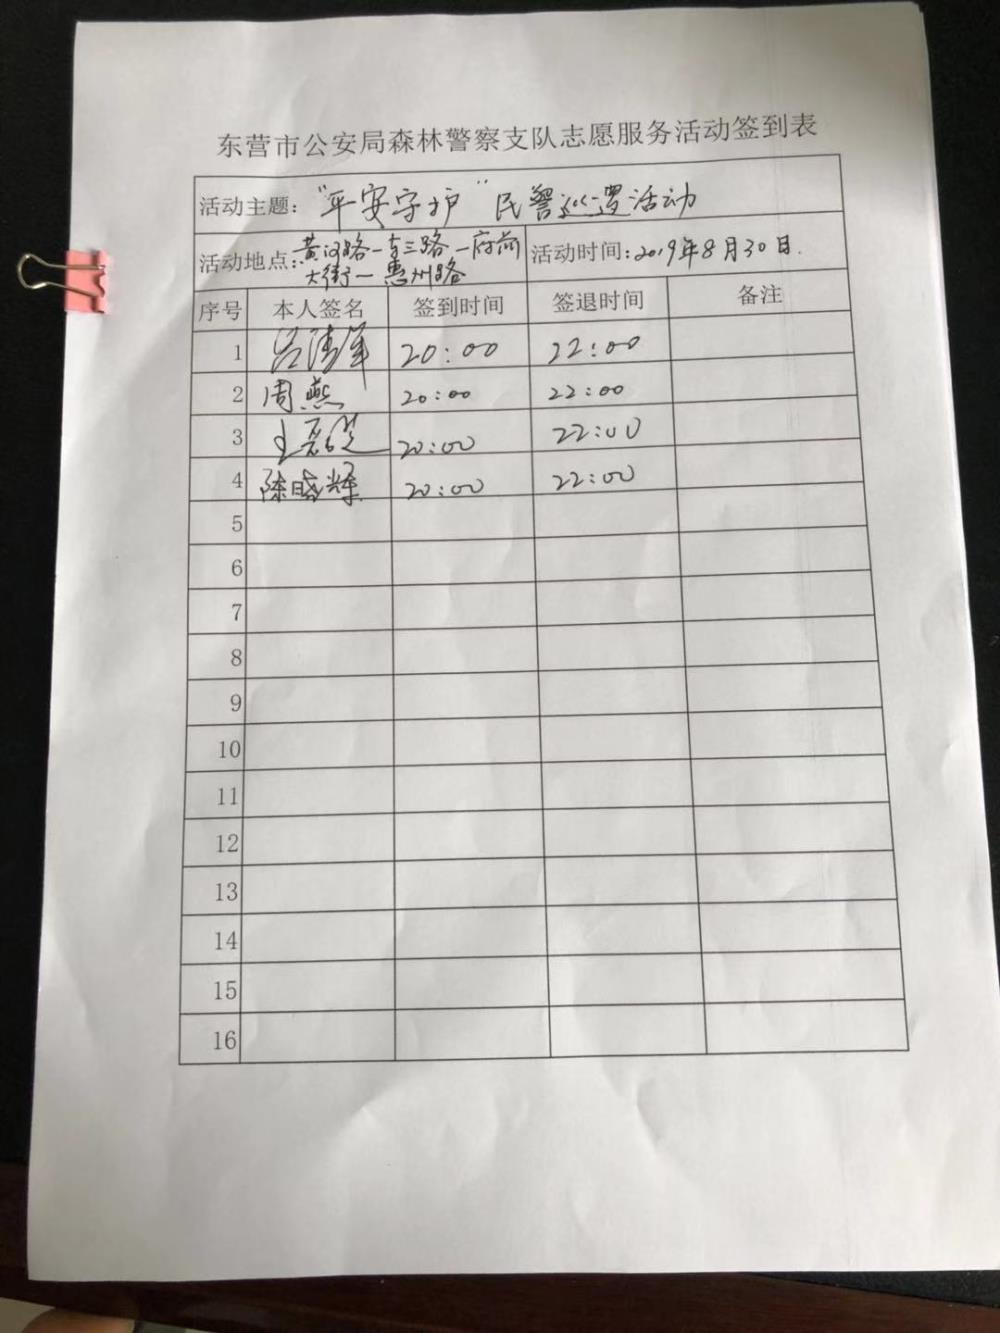 东营市公安局森林警察支队志愿服务活动签到表
活动主题：“平安守护”民警巡逻活动
活动地点：黄河路—东三路—府前
大街—惠州路
活动时间：2019年8月30日.
序号 本人签名 签到时间 签退时间 备注
1 20:00 22:00
2 周燕 20:00 22:00
3 20:00 22:00
4 陈晓辉 20:00 22:00
5
6
7
8
9
10
11
12
13
14
15
16